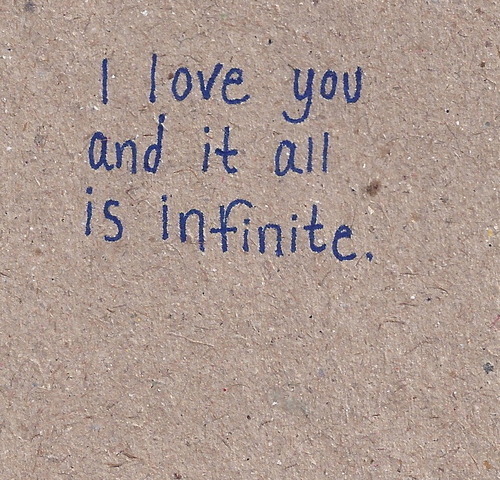 I love you
and it all
is infinite.